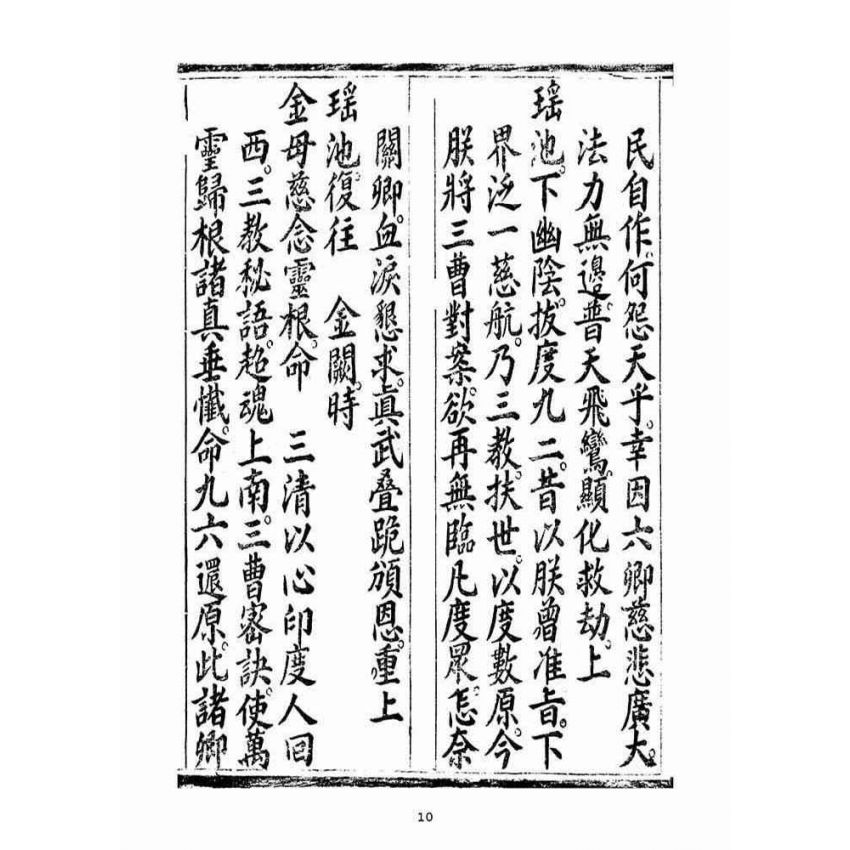 民自作。何怨天乎。幸因六卿慈悲廣大。
法力無邊。普天飛鸞。顯化救劫。上
瑶池。下幽陰。拔度九二。昔以朕曾准旨。下
界泛一慈航。乃三教扶世。以度數原。今
朕將三曹對案。欲再無臨凡度眾。怎奈
關卿。血淚懇求。真武叠跪頒恩。重上
瑶池。復往 金闕。時
金母慈念靈根。命 三清以心印度人回
西。三教秘語。超魂上南。三曹密訣。使萬
靈歸根。諸真垂懺。命九六還原。此諸卿
10